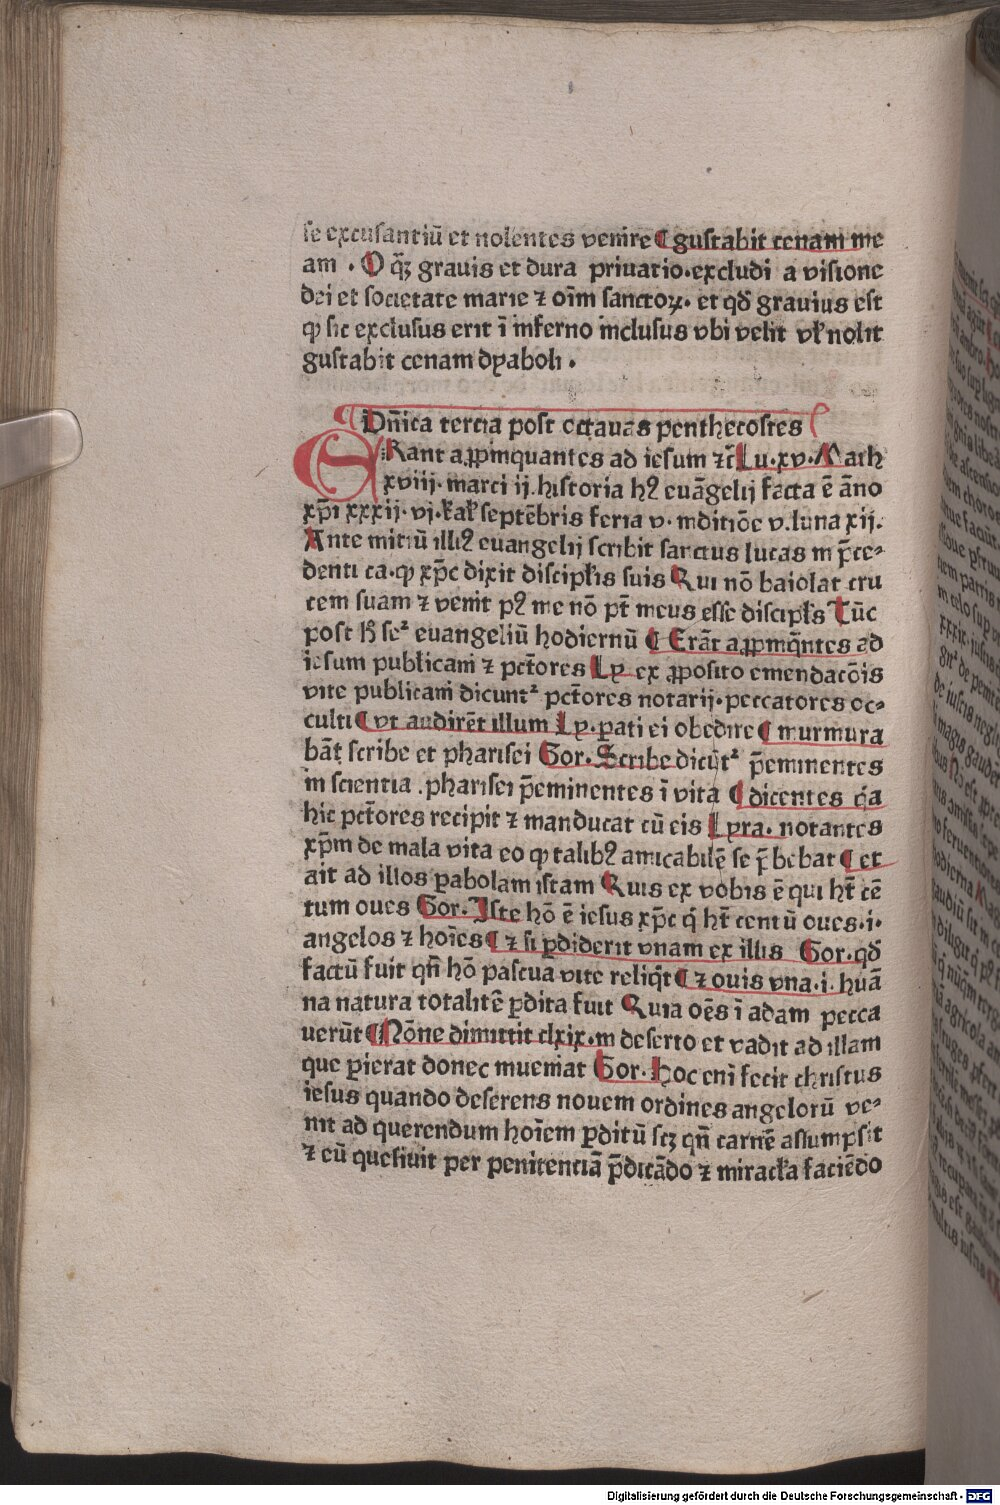 se excusantiū et nolentes venire ¶ gustabit cenam me
am . O q̄ꝫ grauis et dura priuatio . excludi a visione
dei et societate marie ⁊ oīm sanctoꝝ . et qd̄ grauius est
ꝙ sic exclusus erit ī inferno inclusus vbi velit vl̓ nolit
gustabit cenam dyaboli .
¶ Dn̄ica tercia post octauas penthecostes
ERant aꝓpinquantes ad iesum ⁊c̄ Lu . xv . Math
xviij . marci ij . historia hꝰ euāgelij facta ē āno
xp̄i xxxij . vj . kal̓ septēbris feria v . inditiōe v . luna xij .
Ante initiū illiꝰ euangelij scribit sanctus lucas in p̄ce-
denti ca . ꝙ xp̄c dixit discipl̓is suis Qui nō baiolat cru
cem suam ⁊ venit pꝰ me nō pt̄ meus esse discipl̓s Tūc
post h̄ seꝰ euangeliū hodiernū ¶ Erāt aꝓpinq̄ntes ad
iesum publicani ⁊ pctōres Ly ex ꝓposito emendacōis
vite publicani dicunt᷑ pctōres notarij . peccatores oc-
culti ¶ vt audirēt illum Ly . parati ei obedire ¶ murmura
bāt scribe et pharisei Gor . Scribe dicūt᷑ p̄eminentes
in scientia . pharisei p̄eminentes ī vita ¶ dicentes q̓a
hic pctōres recipit ⁊ manducat cū eis Lyra . notantes
xp̄m de mala vita eo ꝙ talibꝰ amicabilē se p̄bebat ¶ et
ait ad illos ꝑabolam istam Quis ex vobis ē qui ht̄ cē
tum oues Gor . Iste hō ē iesus xp̄c q̓ ht̄ centū oues . i .
angelos ⁊ hoīes ¶ ⁊ si ꝑdiderit vnam ex illis Gor . qd̄
factū fuit qn̄ hō pascua vite reliq̓t ¶ ⁊ ouis vna . i . huā
na natura totalitē ꝑdita fuit Quia oēs ī adam pecca
uerūt ¶ Nōne dimittit clxix . in deserto et vadit ad illam
que ꝑierat donec inueniat Gor . Hoc eni fecit christus
iesus quando deserens nouem ordines angelorū ve-
nit ad querendum hoīem ꝑditū scꝫ qn̄ carnē assumpsit
⁊ cū quesiuit per penitenciā p̄dicādo ⁊ miracl̓a faciēdo
Digitalisierung gefördert durch die Deutsche Forschungsgemeinschaft - DFG